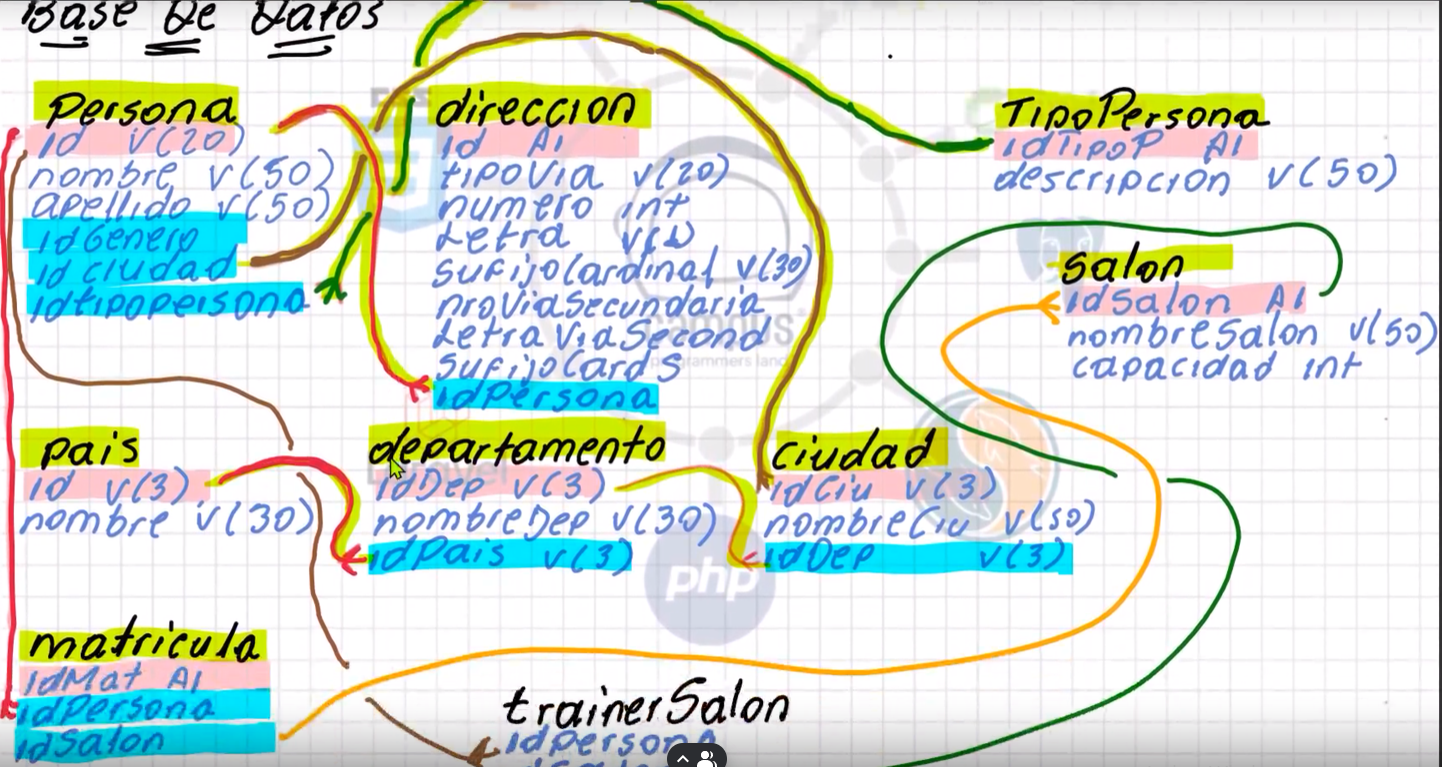 Base De Datos
persona
id v(20)
nombre v(50)
apellido v(50)
idGenero
idciudad
idtipopersona
direccion
id AI
tipoVia v(20)
numero int
Letra
sufijoCardinal v(30)
nroViaSecundaria
LetraViaSecond
sufijoCardS
idPersona
TipoPersona
idTipoP AI
descripcion v(50)
salon
idSalon AI
nombreSalon v(50)
capacidad int
pais
id v(3)
nombre v(30)
departamento
idDep v(3)
nombreDep v(30)
idPais v(3)
ciudad
idCiu v(3)
nombreCiu v(50)
idDep v(3)
matricula
idMat AI
idPersona
idSalon
trainerSalon
idpersona
campus
programmers land
php